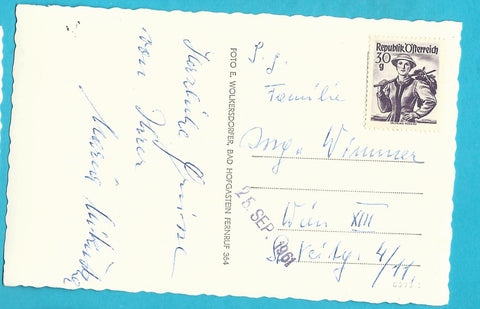 Herzliche Grüsse
von Ihrer
Maria
FOTO E. WOLKERSDORFER, BAD HOFGASTEIN FERNRUF 364
Republik Österreich
30
g
P. J.
Familie
Ing. Wimmer
Wien XIII
4/11
25. SEP. 1961